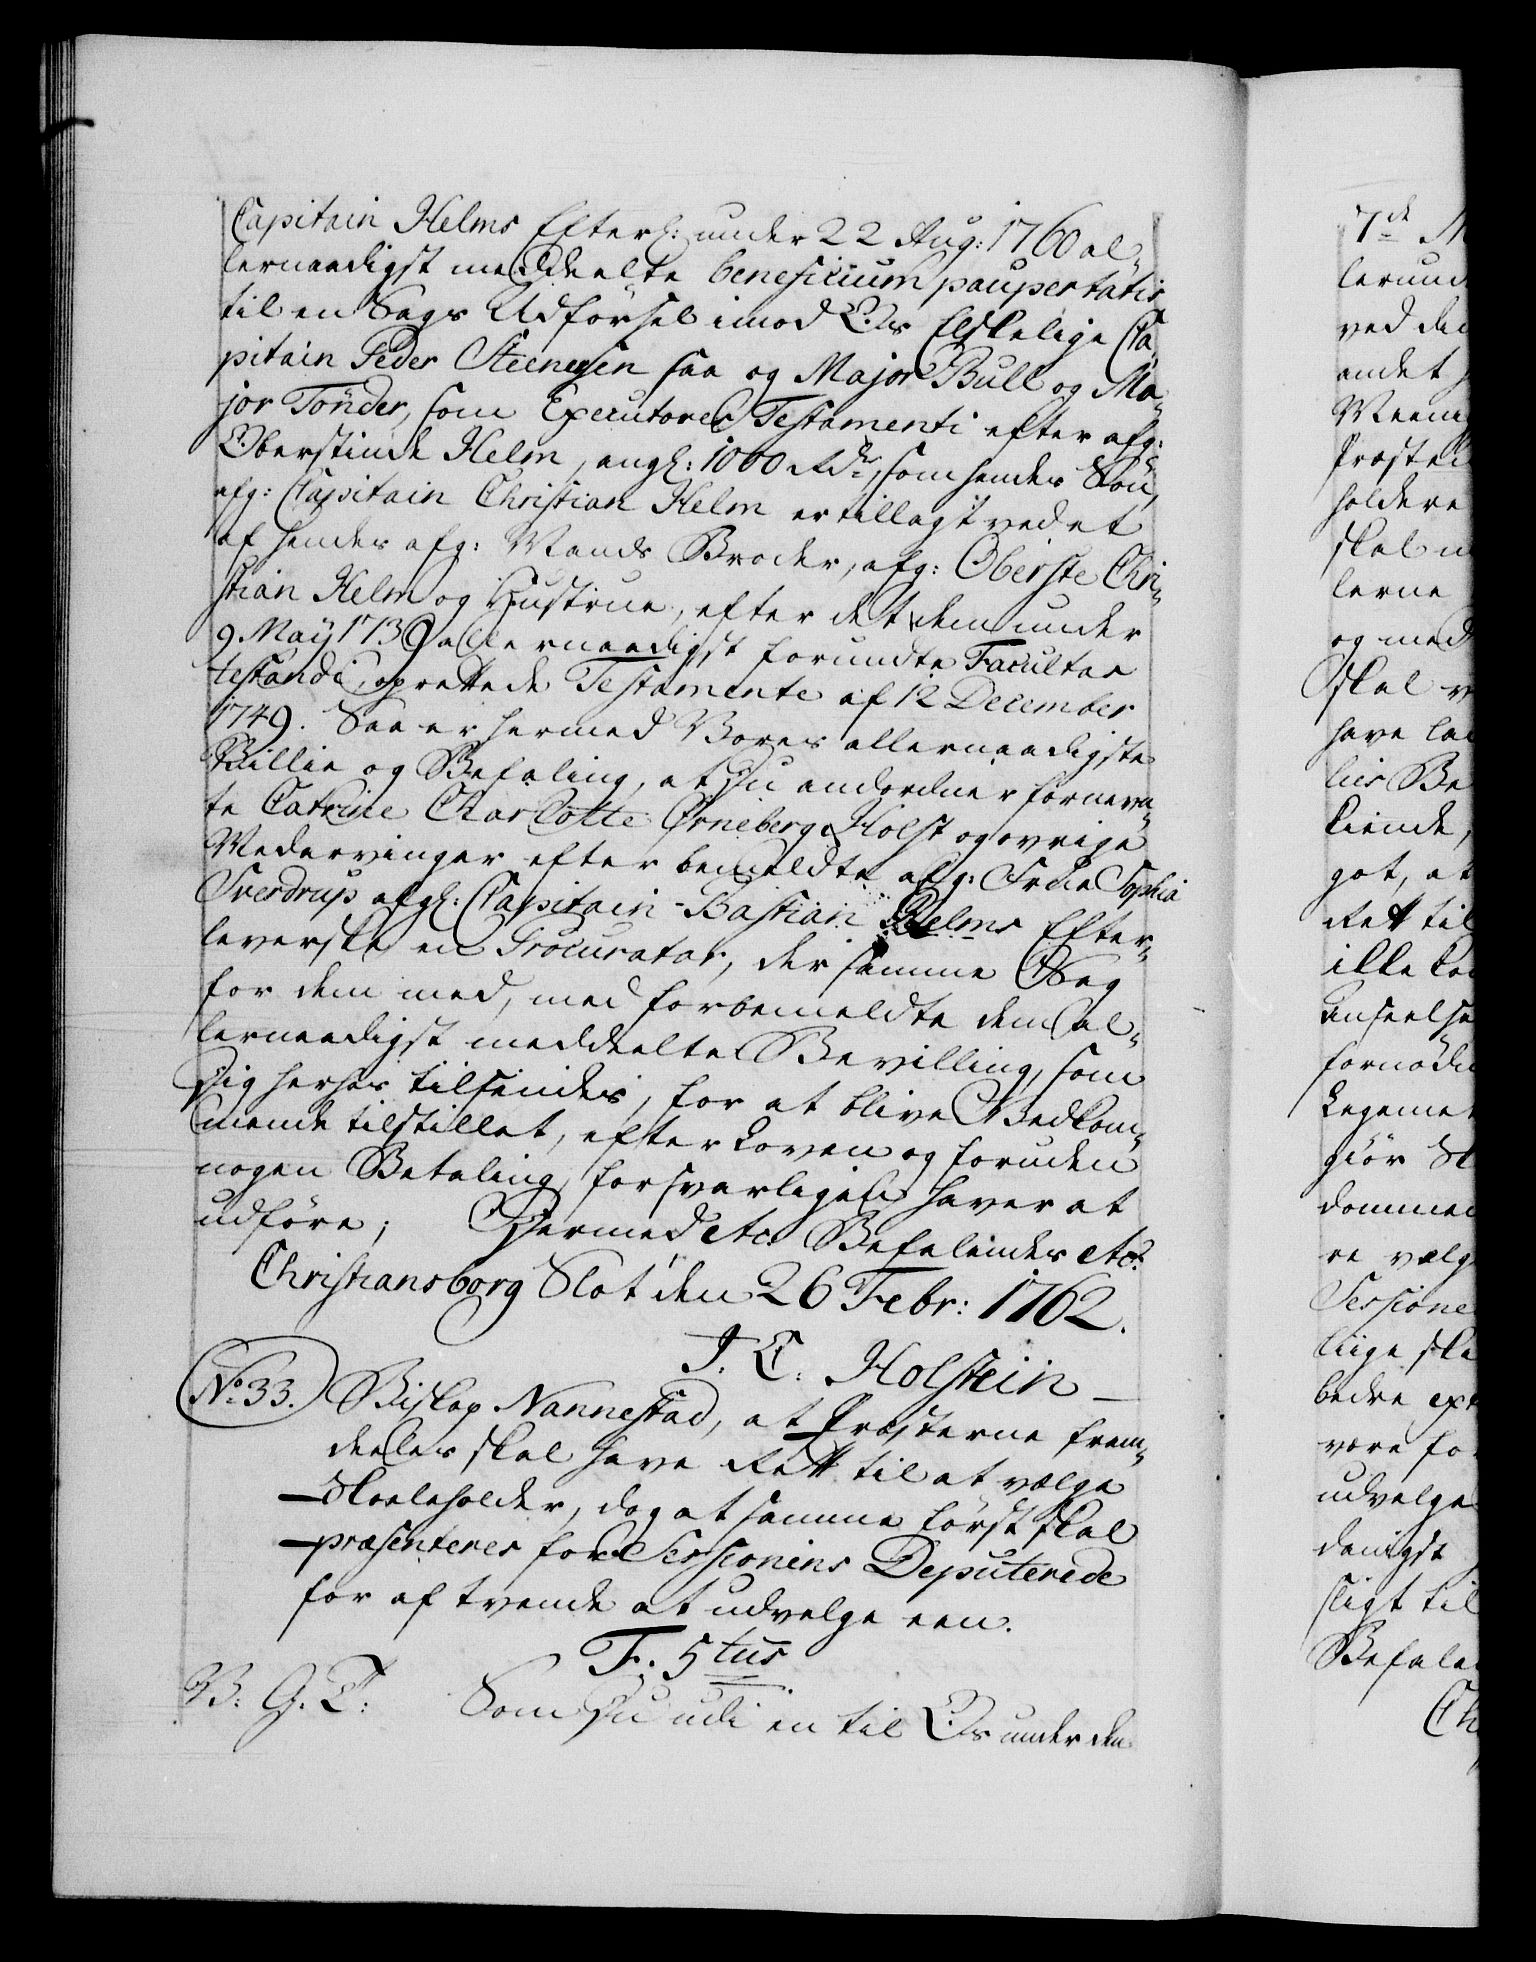 Capitain Helms Efterl: under 22 Aug: 1760 al-
lernaadigst meddeelte beneficium paupertatis
til en Sags Udförsel imod Os Elskelige Ca-
pitain Peder Steensen saa og Major Bull og Ma-
jor Tönder, som Executores Testamenti efter afg:
Oberstinde Helm, angl: 1000 Rdr, som hendes Sön,
afg: Capitain Christian Helm er tillagt ved et
af hendes afg: Mands Broder, afg: Oberste Chri-
stian Helm og Hustrue, efter det dem under
9. May 1739 allernaadigst forundte Facultas
testandi, oprettede Testamente af 12 December
1749. Saa er hermed Vores allernaadigste
Villie og Befaling, at Du anordner fornevn-
te Catrine Charlotte Örneberg Holst og ovrige
Medarvinger efter bemeldte afg: Frue Sophia
Sverdrup afgl: Capitain Bastian Helms Efter-
leverske en Procurator, der samme Sag
for dem med, med forbemeldte dem al-
lernaadigst meddeelte Bevilling, som
Dig herhos tilsendes, for at blive Vedkom-
mende tilstillet, efter Loven og foruden
nogen Betaling, forsvarligen haver at
udföre; Hermed etc. Befalendes etc.
Christiansborg Slot den 26 Febr: 1762.
J. C. Holstein
No. 33. Biskop Nannestad, at Præsterne frem-
deeles skal have Rett til at vælge
Skoeleholder, dog at samme först skal
præsenteres for Sessionens Deputerede
for af tvende at udvelge een.
F. 5tus
V. G. T: Som Du udi en til Os under den
7de M
lerund
ved den
andet
Meenig
Præster
holdere
skal
lerne
og med
skal
have
Be
kiende,
got, at
Rett til
ikke
Anseelse
fornöde
Legemet
giör
dommen
re vælg
Sessione
liige ska
bedre ex
være for
udvelge
danigst
sligt til
Befale
Ch